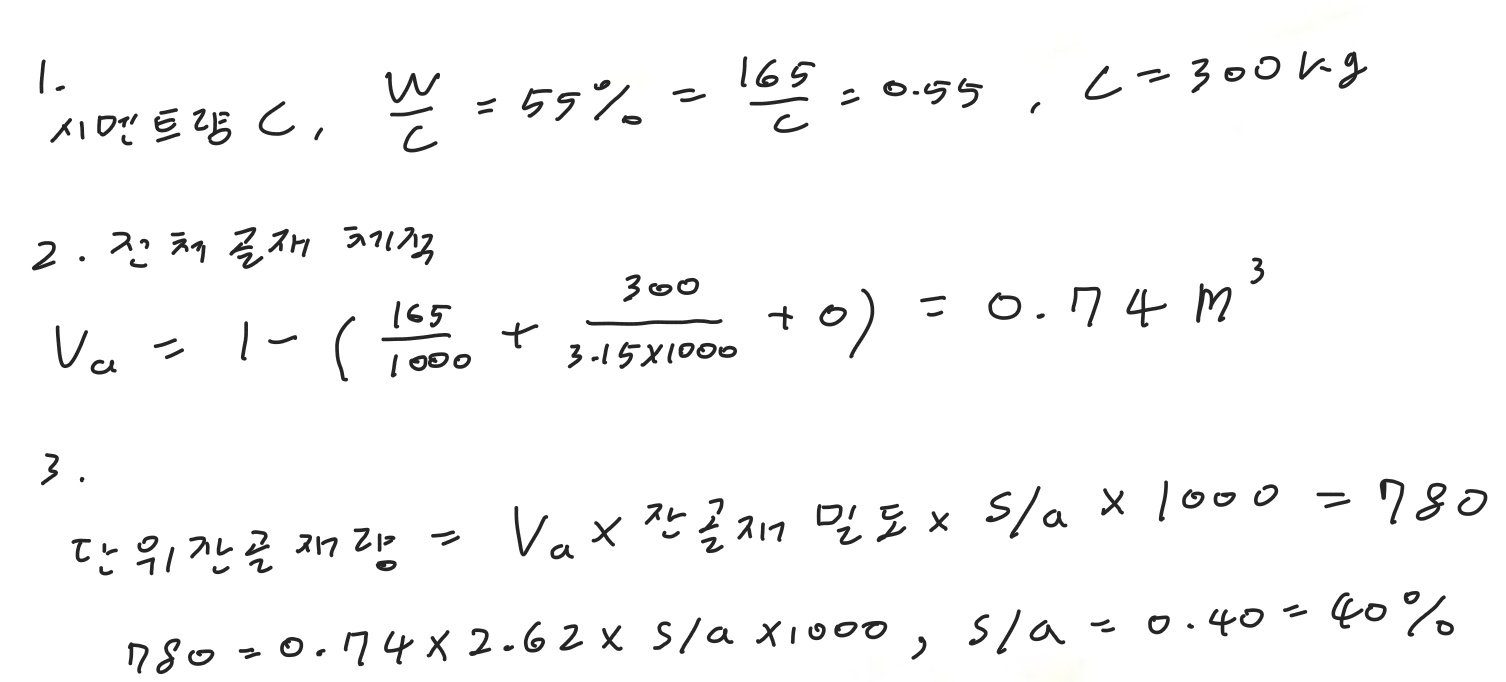 1.
시멘트량 C, W/C = 55% = 165/C = 0.55, C = 300kg
2. 전체 골재 체적
Va = 1 - (165/1000 + 300/3.15×1000 + 0) = 0.74 m³
3.
단위잔골재량 = Va × 잔골재 밀도 × S/a × 1000 = 780
780 = 0.74 × 2.62 × S/a × 1000, S/a = 0.40 = 40%